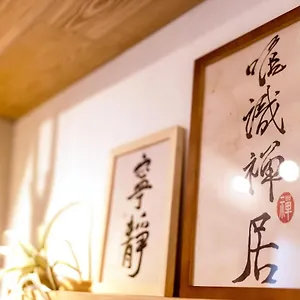 唯識禪居
禪
寧靜